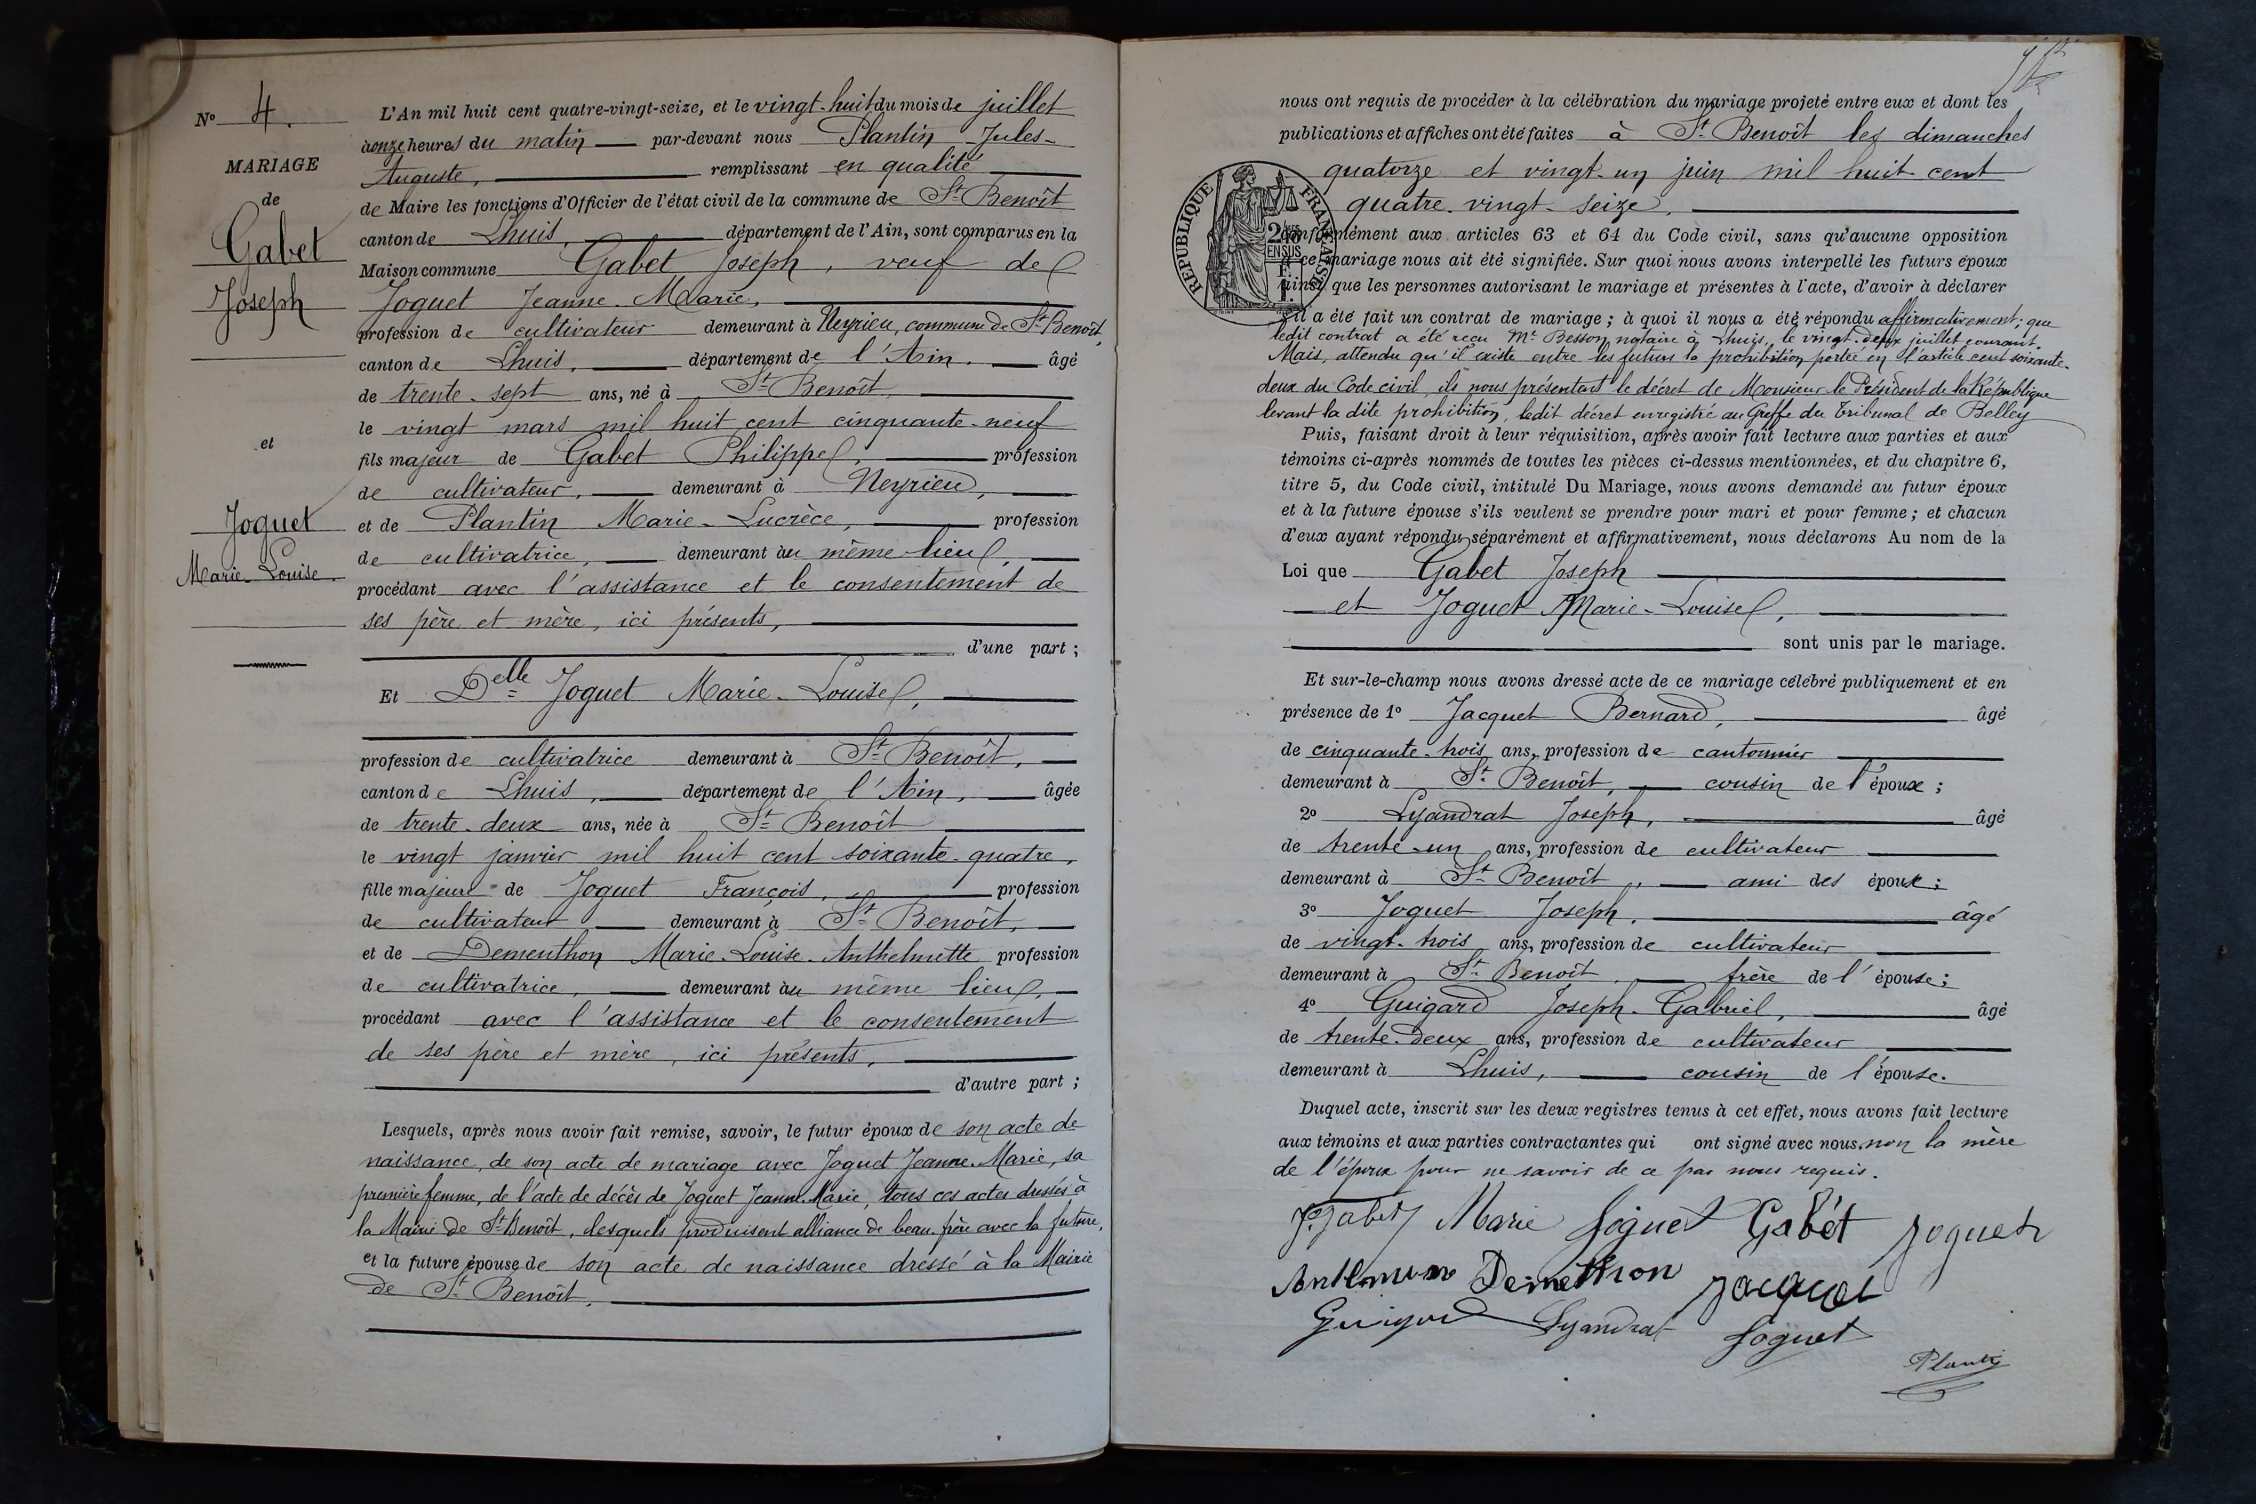 N° 4.
MARIAGE
de
Gabet
Joseph
et
Joguet
Marie-Louise.
L'An mil huit cent quatre-vingt-seize, et le vingt-huit du mois de juillet
à onze heures du matin par-devant nous Plantin Jules-
Auguste, remplissant en qualité
de Maire les fonctions d'Officier de l'état civil de la commune de St Benoît
canton de Lhuis, département de l'Ain, sont comparus en la
Maison commune Gabet Joseph, veuf de
Joguet Jeanne-Marie,
profession de cultivateur demeurant à Neyrieu, commune de St Benoît,
canton de Lhuis, département de l'Ain, âgé
de trente-sept ans, né à St Benoît,
le vingt mars mil huit cent cinquante-neuf
fils majeur de Gabet Philippe, profession
de cultivateur, demeurant à Neyrieu,
et de Plantin Marie-Lucrèce, profession
de cultivatrice, demeurant au même lieu,
procédant avec l'assistance et le consentement de
ses père et mère, ici présents,
d'une part ;
Et Delle Joguet Marie-Louise,
profession de cultivatrice demeurant à St Benoît,
canton de Lhuis, département de l'Ain, âgée
de trente-deux ans, née à St Benoît
le vingt janvier mil huit cent soixante-quatre,
fille majeure de Joguet François, profession
de cultivateur demeurant à St Benoît,
et de Dementhon Marie-Louise-Anthelmette profession
de cultivatrice, demeurant au même lieu,
procédant avec l'assistance et le consentement
de ses père et mère, ici présents,
d'autre part ;
Lesquels, après nous avoir fait remise, savoir, le futur époux de son acte de
naissance, de son acte de mariage avec Joguet Jeanne-Marie, sa
première femme, de l'acte de décès de Joguet Jeanne-Marie, tous ces actes dressés à
la Mairie de St Benoît, desquels produisent alliance de beau-frère avec la future,
et la future épouse de son acte de naissance dressé à la Mairie
de St Benoît,
nous ont requis de procéder à la célébration du mariage projeté entre eux et dont les
publications et affiches ont été faites à St Benoît les dimanches
quatorze et vingt-un juin mil huit cent
quatre-vingt-seize,
RÉPUBLIQUE FRANÇAISE
conformément aux articles 63 et 64 du Code civil, sans qu'aucune opposition
à ce mariage nous ait été signifiée. Sur quoi nous avons interpellé les futurs époux
ainsi que les personnes autorisant le mariage et présentes à l'acte, d'avoir à déclarer
s'il a été fait un contrat de mariage ; à quoi il nous a été répondu affirmativement ; que
ledit contrat a été reçu Me Besson, notaire à Lhuis, le vingt-deux juillet courant.
Mais, attendu qu'il existe entre les futurs la prohibition portée en l'article cent soixante-
deux du Code civil, ils nous présentent le décret de Monsieur le Président de la République
levant la dite prohibition, ledit décret enregistré au Greffe du Tribunal de Belley
Puis, faisant droit à leur réquisition, après avoir fait lecture aux parties et aux
témoins ci-après nommés de toutes les pièces ci-dessus mentionnées, et du chapitre 6,
titre 5, du Code civil, intitulé Du Mariage, nous avons demandé au futur époux
et à la future épouse s'ils veulent se prendre pour mari et pour femme ; et chacun
d'eux ayant répondu séparément et affirmativement, nous déclarons Au nom de la
Loi que Gabet Joseph
et Joguet Marie-Louise,
sont unis par le mariage.
Et sur-le-champ nous avons dressé acte de ce mariage célébré publiquement et en
présence de 1° Jacquet Bernard, âgé
de cinquante-trois ans, profession de cantonnier
demeurant à St Benoît, cousin de l'époux ;
2° Lyandrat Joseph, âgé
de trente-un ans, profession de cultivateur
demeurant à St Benoît, ami des époux ;
3° Joguet Joseph, âgé
de vingt-trois ans, profession de cultivateur
demeurant à St Benoît, frère de l'épouse ;
4° Guigard Joseph-Gabriel, âgé
de trente-deux ans, profession de cultivateur
demeurant à Lhuis, cousin de l'épouse.
Duquel acte, inscrit sur les deux registres tenus à cet effet, nous avons fait lecture
aux témoins et aux parties contractantes qui ont signé avec nous, non la mère
de l'époux pour ne savoir de ce par nous requis.
J. Gabet Marie Joguet Gabét Joguet
Demethon Jacquet
Guigard Lyandrat Joguet
Plantin